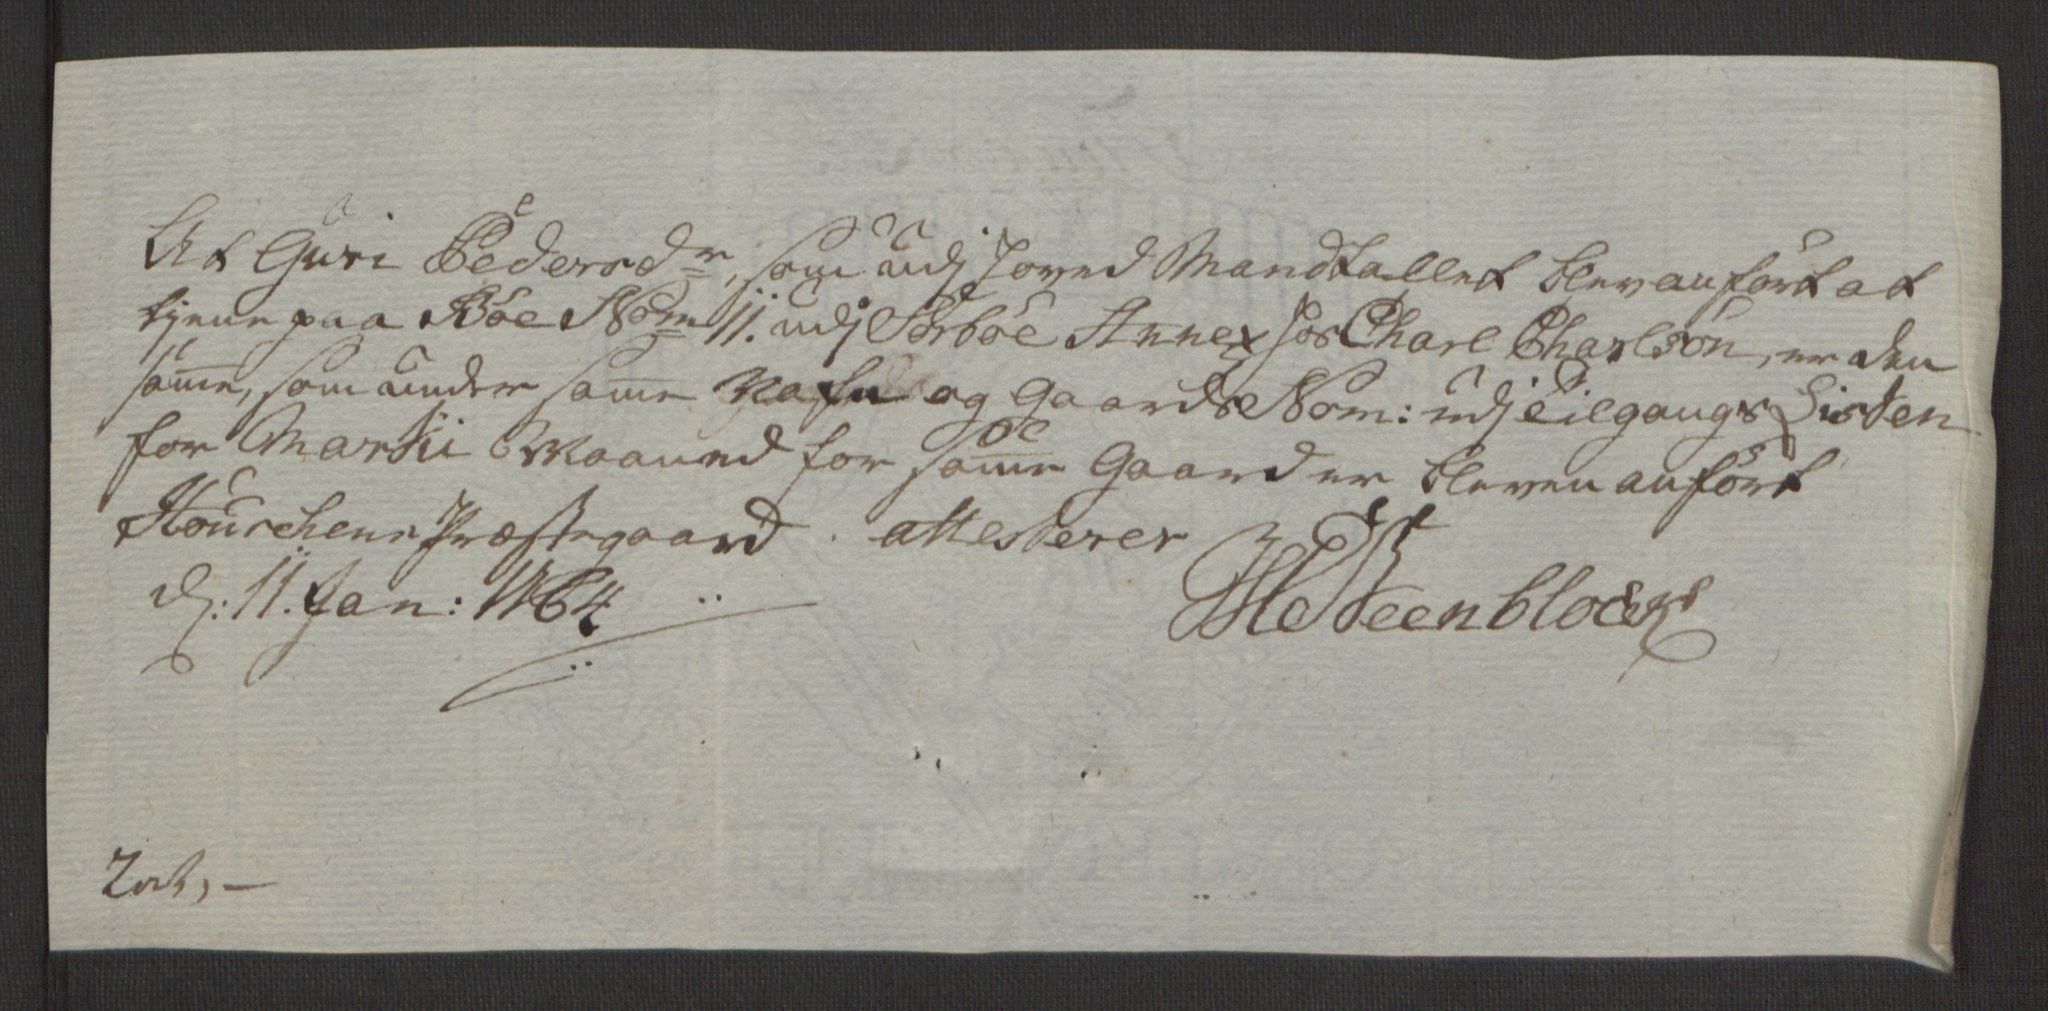 At Guri Pedersdr, som udj Hoved Mandtallet blev anført at
tjene paa Bøe Nom 11. udj Sørbøe Annex hos Charl Charlsøn, er den
samme, som under samme Nafn og Gaards Nom: udj Tilgangs Listen
for Martii Maaned for samme Gaard er bleven anført
Præstegaard. attesterer
d: 11. Jan: 1764
HSteenblock